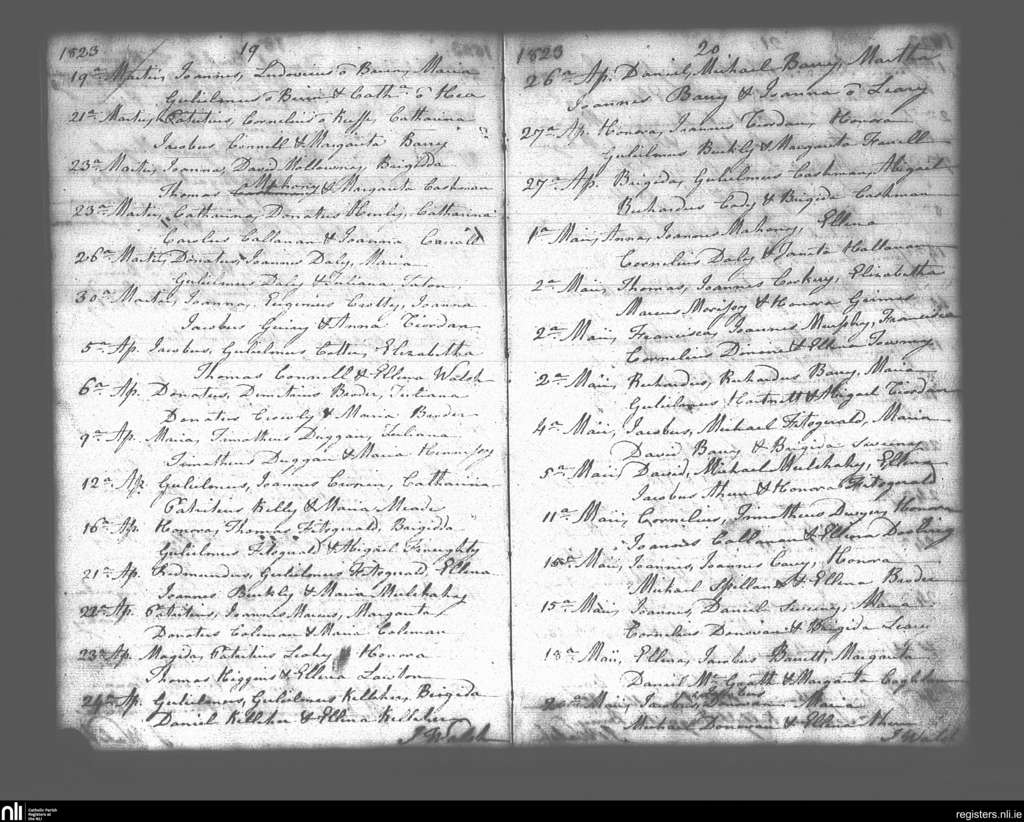 1823 19
19a Martii, Joannes, Ludovicus ō Barry, Maria
Gulielmus ō Brien & Cath. ō Hea
21a Martii, Patritius, Cornelius ō Keeffe, Catharina
Jacobus Connell & Margarita Barry
23a Martii, Joanna, David Brigida
Thomas Mahony & Margarita Cashman
23a Martii, Catharina, Donatus Henly, Catharina
Carolus Callanan & Joanna Carroll
26a Martii, Donatus, Joannes Daly, Maria
Gulielmus Daly & Juliana
30a Martii, Joanna, Eugenius Crotty, Joanna
Jacobus Guiry & Anna Riordan
5a Ap. Jacobus, Gulielmus Cotter, Elizabetha
Thomas Connell & Ellena Walsh
6a Ap. Donatus, Demetrius Juliana
Donatus Crowly & Maria
9a Ap. Maria, Timotheus Duggan, Juliana
Timotheus Duggan & Maria Hennessy
12a Ap. Gulielmus, Joannes Cronin, Catharina
Patritius Kelly & Maria Meade
16a Ap. Honora, Thomas Fitzgerald, Brigida
Gulielmus Fitzgerald & Abigael Finaghty
21a Ap. Redmundus, Gulielmus Fitzgerald, Ellena
Joannes Buckly & Maria Mulchahy
22a Ap. Patritius, Joannes Margarita
Donatus Coleman & Maria Coleman
23a Ap. Magida, Patritius Leahy Honora
Thomas Higgens & Ellena Lawton
24a Ap. Gulielmus, Gulielmus Kelleher, Brigida
Daniel Kelleher & Ellena Kelleher
J Walsh
1823 20
26a Ap. Daniel, Michael Barry, Martha
Joannes Barry & Joanna ō Leary
27a Ap. Honora, Joannes Riordan, Honora
Gulielmus Buckly & Margarita Farrell
27a Ap. Brigida, Gulielmus Cashman, Abigael
Richardus Cody & Brigida Cashman
1a Maii, Anna, Joannes Mahony, Ellena
Cornelius Daly & Callanan
2a Maii, Thomas, Joannes Corkery, Elizabetha
Marcus Morissy & Honora
2a Maii, Francisca, Joannes Murphy, Francisca
Cornelius & Ellena
2a Maii, Richardus, Richardus Barry, Maria
Gulielmus Hartnett & Abigael Riordan
4a Maii, Jacobus, Michael Fitzgerald, Maria
David Barry & Brigida Sweeny
5a Maii David, Michael Mulchahy, Ellena
Jacobus Ahern & Honora Fitzgerald
11a Maii, Cornelius, Timotheus Dwyer, Honora
Joannes Callanan & Ellena
15a Maii, Joannes, Joannes Carey, Honora
Michael Spillane & Ellena
15a Maii, Joannes, Daniel Sweeny, Maria
Cornelius Donovan & Brigida Leary
18a Maii, Ellena, Jacobus Barrett, Margarita
Daniel Mc Grath & Margarita Coghlan
20a Maii, Jacobus, Maria
Michael Donovan & Ellena Ahern
J Walsh
nli
Catholic Parish
Registers at
the NLI
registers.nli.ie